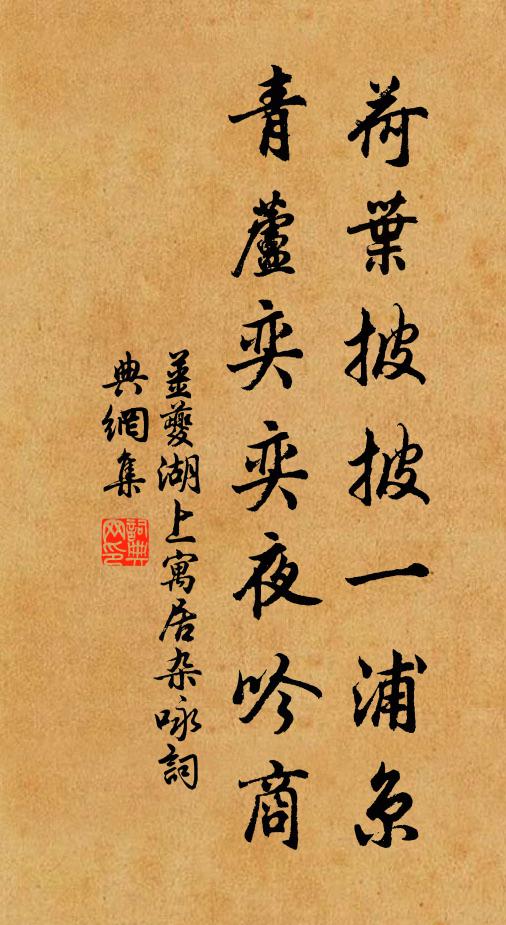 荷葉披披一浦京
青蘆奕奕夜吟商
姜夔湖上寓居杂咏詞
典網集
詞典
网印